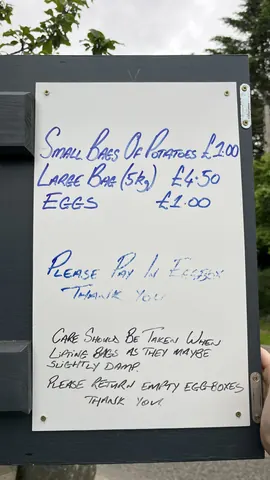 SMALL BAGS OF POTATOES £1.00
LARGE BAG (5Kg) £4.50
EGGS £1.00
PLEASE PAY IN EGGBOX
THANK YOU
CARE SHOULD BE TAKEN WHEN
LIFTING BAGS AS THEY MAYBE
SLIGHTLY DAMP.
PLEASE RETURN EMPTY EGG-BOXES
THANK YOU!